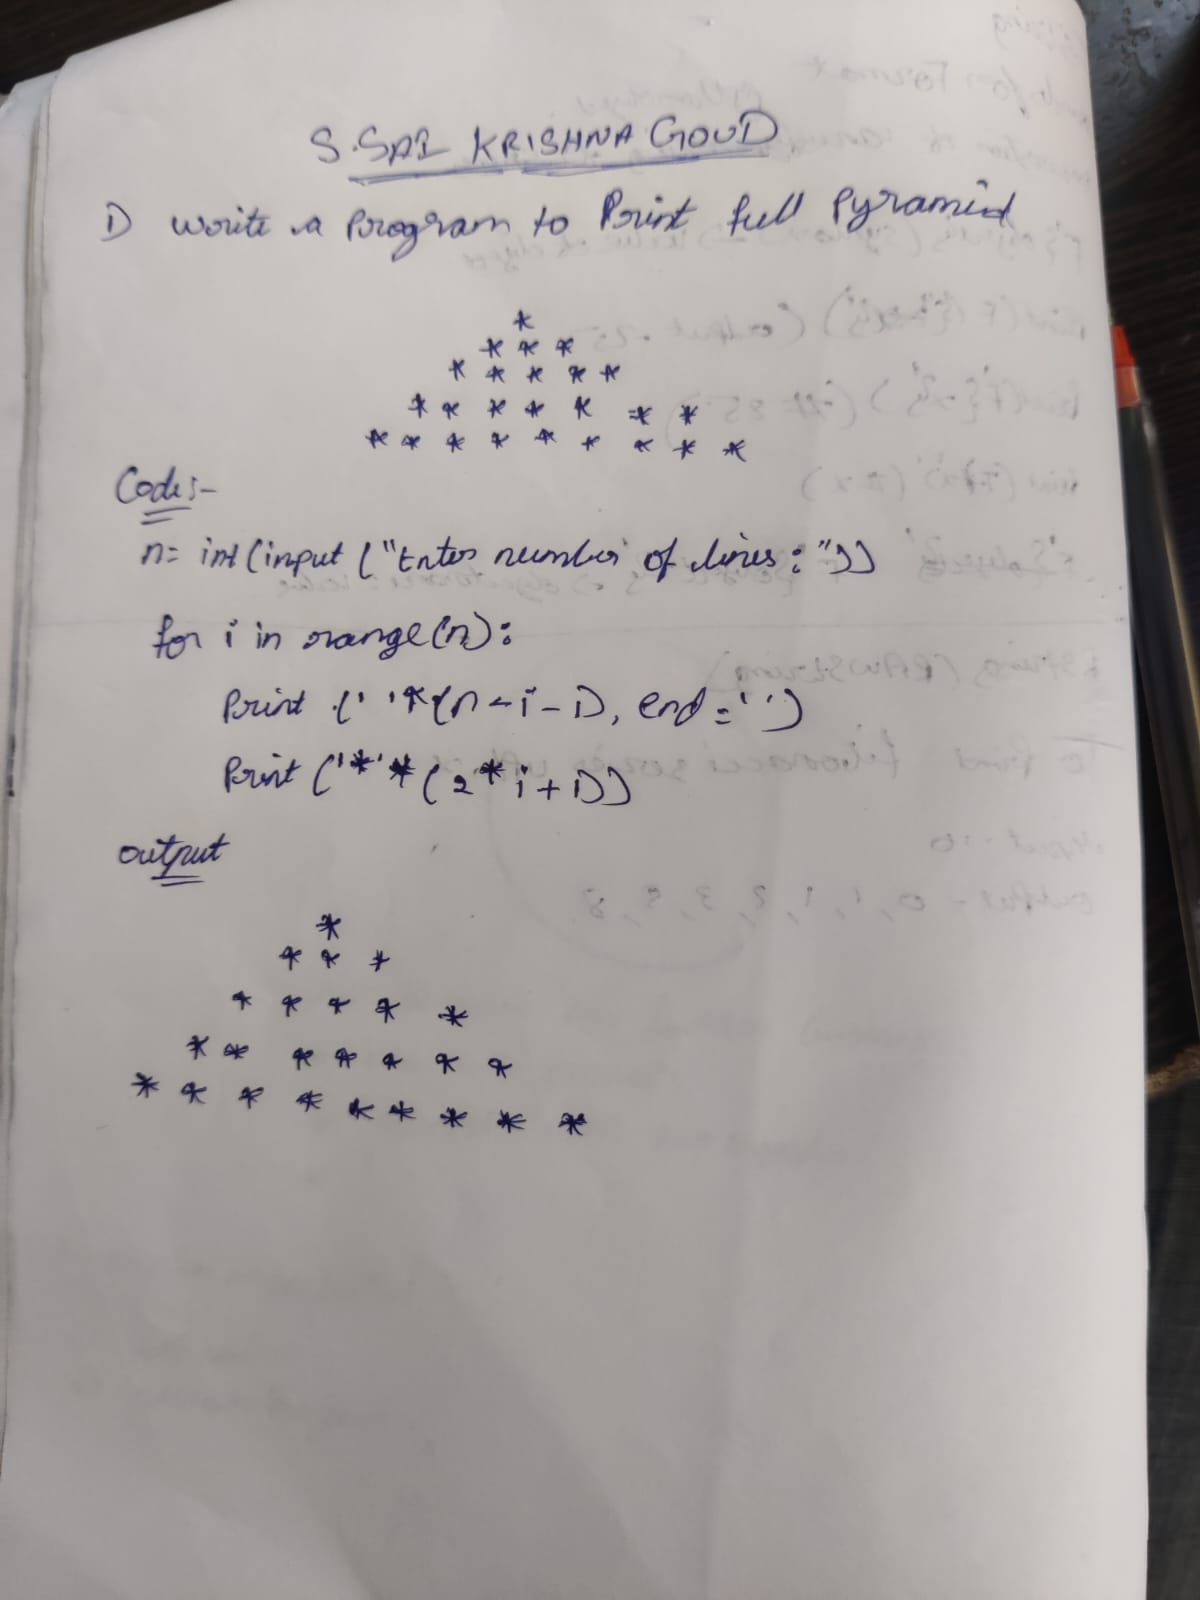 S.SAI KRISHNA GOUD
1) Write a Program to Print full Pyramid
*
* * *
* * * * *
* * * * * * *
* * * * * * * * *
Code:-
n= int(input("Enter number of lines:"))
for i in range(n):
Print (' '*(n-i-1), end='')
Print ('*'*(2*i+1))
output
*
* * *
* * * * *
* * * * * * *
* * * * * * * * *